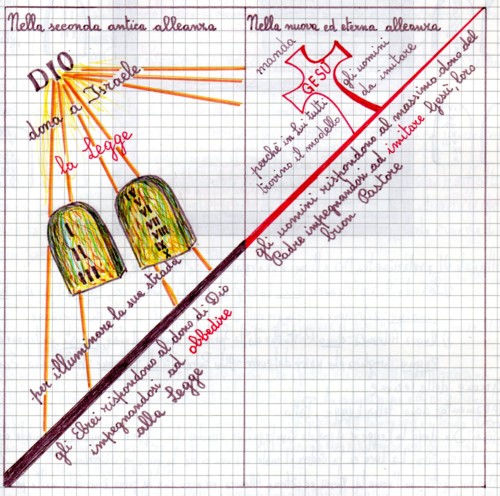 Nella seconda antica alleanza
DIO
dona a Israele
la Legge
I
II
III
IV
V
VI
VII
VIII
IX
X
per illuminare la sua strada
gli Ebrei rispondono al dono di Dio
impegnandosi ad obbedire
alla Legge
Nella nuova ed eterna alleanza
manda
GESÙ
gli uomini
da imitare
perchè in lui tutti
trovino il modello
gli uomini rispondono al massimo dono del
Padre impegnandosi ad imitare Gesù, loro
buon Pastore